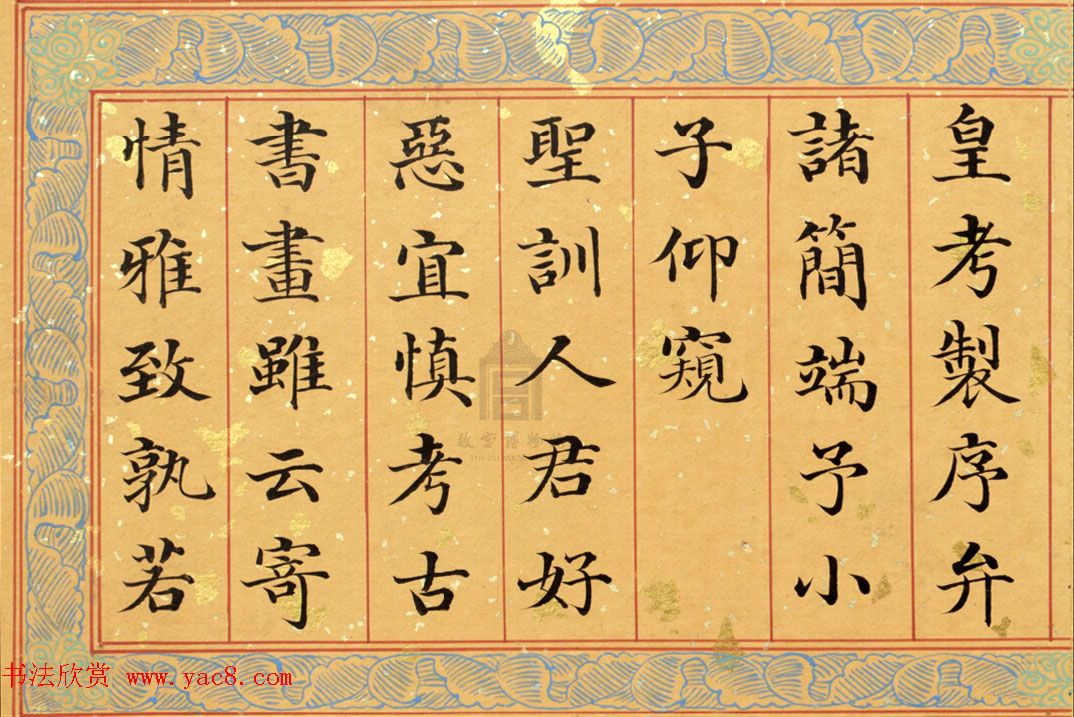 皇考製序弁
諸簡端予小
子仰窺
聖訓人君好
惡宜慎考古
書畫雖云寄
情雅致孰若
故宮博物
THE PALACE M
书法欣赏 www.yac8.com